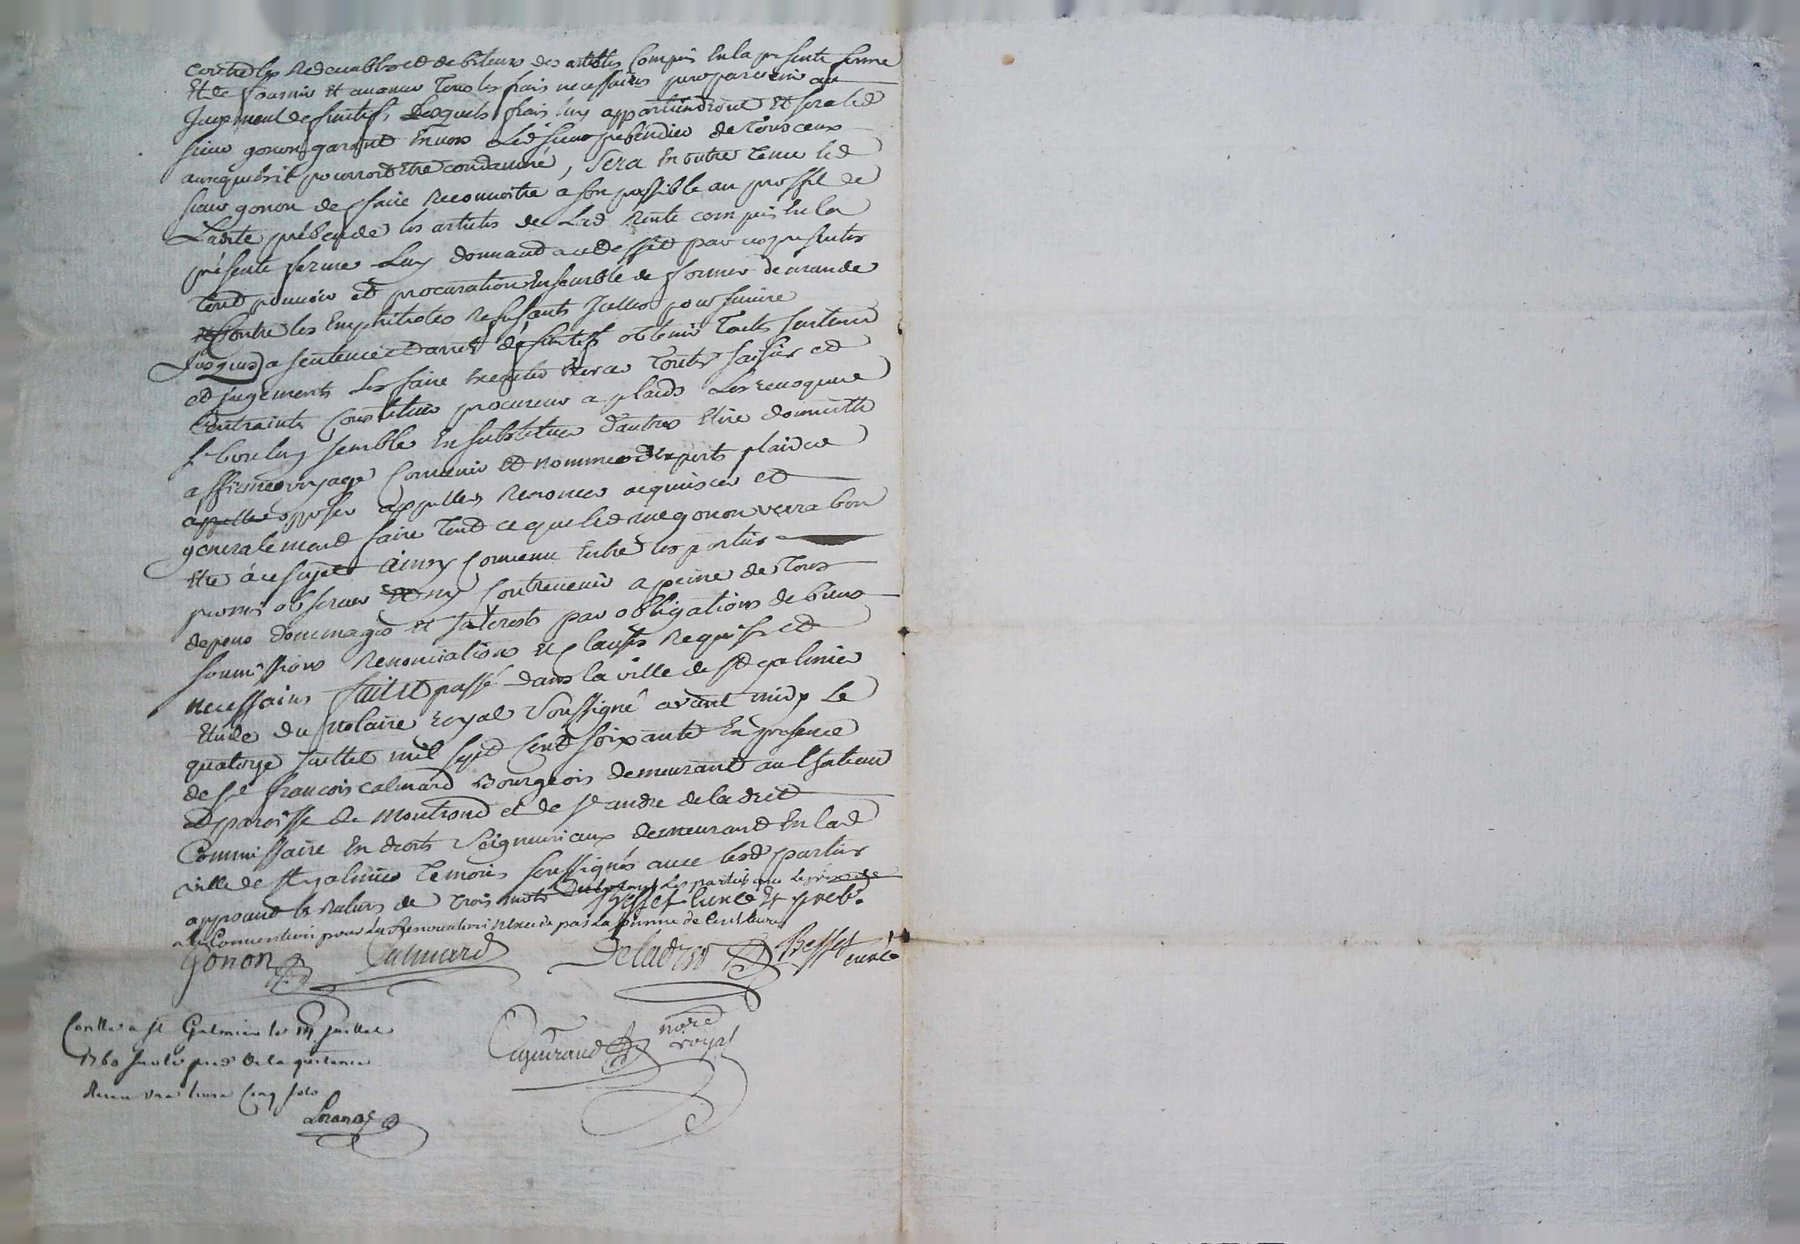 contre les Redevables et debiteurs des articles Compris En la presente ferme
Et de fournir et avancer Tous les frais necessaires pour parvenir au
Jugement definitif, Lesquels frais luy appartiendront Et sera led
sieur gonon garant Envers Led sieur prebendier de Tous ceux
auxquels il pourroit Etre condamné, Sera En outre Tenu led
sieur gonon de faire Reconnoitre a son possible au proffit de
Ladite prébende les articles de Lad Rente compris En la
présente ferme Luy donnant a cet effet par ces presentes
Tout pouvoir et procuration Ensemble de former demande
Contre les Emphiteotes Refusants Icelles poursuivre
Jusques a sentence et arret définitifs obtenir Touttes sentences
et jugements Les faire Executer Par Touttes saisies et
Contraintes Constituer procureur a plaids Les revoquer
si bon luy semble En substituer d'autres Elire domicille
affirmer voyage Convenir et nommer d'Experts plaider
opposer appeller Renoncer acquiescer et
generalement faire Tout ce que led sieur gonon verra bon
Etre à ce sujet ainsy Convenu Entre les parties
promis observer ny Contrevenir a peine de Tous
depens dommages et Interests par obligations de biens
soumissions Renonciations Et clauses Requises et
necessaires fait et passé dans la ville de st galmier
Etude du notaire royal soussigné avant midy Le
quatorze juillet mil sept cent soixante En presence
de sr francois calmard Bourgeois demeurant au chateau
et paroisse de montrond et de sr andre de ladret
Commissaire En droits Seigneuriaux demeurant En lad
ville de st galmier Temoins soussignés avec lesd parties
approuvé la Rature de Trois mots les parties que le
Besset curé Et preb.
Convention pour la Renovation n'Excede pas la somme de Cent livres
gonon Calmard Deladret Besset curé
Cognerand nore royal
Conllé a st Galmier le 14 juillet
1760
Receu une livre cinq sols